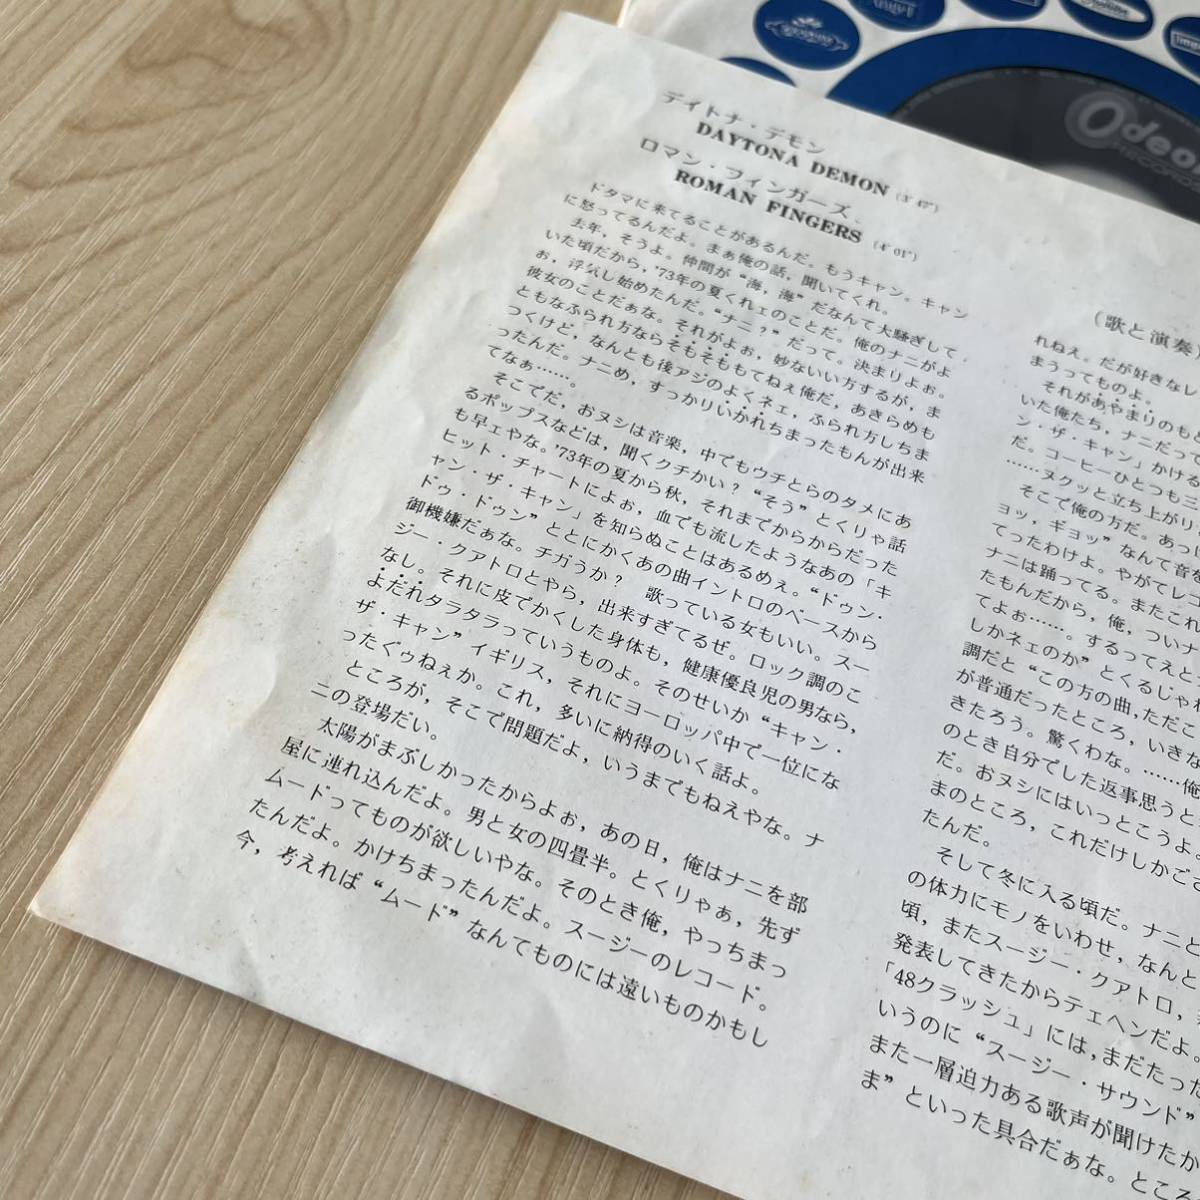 デイトナ・デモン
DAYTONA DEMON (3′47″)
ロマン・フィンガーズ
ROMAN FINGERS (4′01″)
ドタマに来てることがあるんだ。もうキャン。キャン
に怒ってるんだよ。まぁ俺の話，聞いてくれ。
去年，そうよ。仲間が“海，海”だなんて大騒ぎして
いた頃だから，’73年の夏くれェのことだ。俺のナニがよ
ぉ，浮気し始めたんだ。“ナニ？”だって。決まりよぉ。
彼女のことだぁな。それがよぉ，妙ないい方するが，ま
ともなふられ方ならそもそももてねぇ俺だ，あきらめも
つくけど，なんとも後アジのよくネェ，ふられ方しちま
ったんだ。ナニめ，すっかりいかれちまったもんが出来
てなぁ……。
そこでだ，おヌシは音楽，中でもウチとらのタメにあ
るポップスなどは，聞くクチかい？“そう”とくりゃ話
も早ェやな。’73年の夏から秋，それまでからからだった
ヒット・チャートによぉ，血でも流したようなあの「キ
ャン・ザ・キャン」を知らぬことはあるめぇ。“ドゥン・
ドゥ・ドゥン”ととにかくあの曲イントロのベースから
御機嫌だぁな。チガうか？　歌っている女もいい。スー
ジー・クアトロとやら，出来すぎてるぜ。ロック調のこ
なし。それに皮でかくした身体も，健康優良児の男なら，
よだれタラタラっていうものよ。そのせいか“キャン・
ザ・キャン”イギリス，それにヨーロッパ中で一位にな
ったぐゥねぇか。これ，多いに納得のいく話よ。
ところが，そこで問題だよ，いうまでもねえやな。ナ
ニの登場だい。
太陽がまぶしかったからよぉ，あの日，俺はナニを部
屋に連れ込んだよ。男と女の四畳半。とくりゃぁ，先ず
ムードってものが欲しいやな。そのとき俺，やっちまっ
たんだよ。かけちまったんだよ。スージーのレコード。
今，考えれば“ムード”なんてものには遠いものかもし
(歌と演奏)
れねえ。だが好きなレ
まうってものよ。
それがあやまりのも
いた俺たち，ナニだって
ン・ザ・キャン」かける
だ。コーヒーひとつも三
……ヌクッと立ち上がり
そこで俺の方だ。あっけ
ョッ，ギョッ”なんて音を
てったわけよ。やがてレコ
ナニは踊ってる。またこれ
たもんだから，俺，ついナ
てよぉ……。するってえと
しかネェのか”とくるじゃれ
調だと“この方の曲，ただこ
が普通だったところ，いきな
きたろう。驚くわな。……俺
のとき自分でした返事思うと
だ。おヌシにはいっとこうよ。
まのところ，これだけしかござ
たんだ。
そして冬に入る頃だ。ナニと
の体力にモノをいわせ，なんと
頃，またスージー・クアトロ，
発表してきたからテェヘンだよ。
「48クラッシュ」には，まだたった
いうのに“スージー・サウンド”
また一層迫力ある歌声が聞けたか
ま”といった具合だぁな。ところ
Odeon
RECORDS